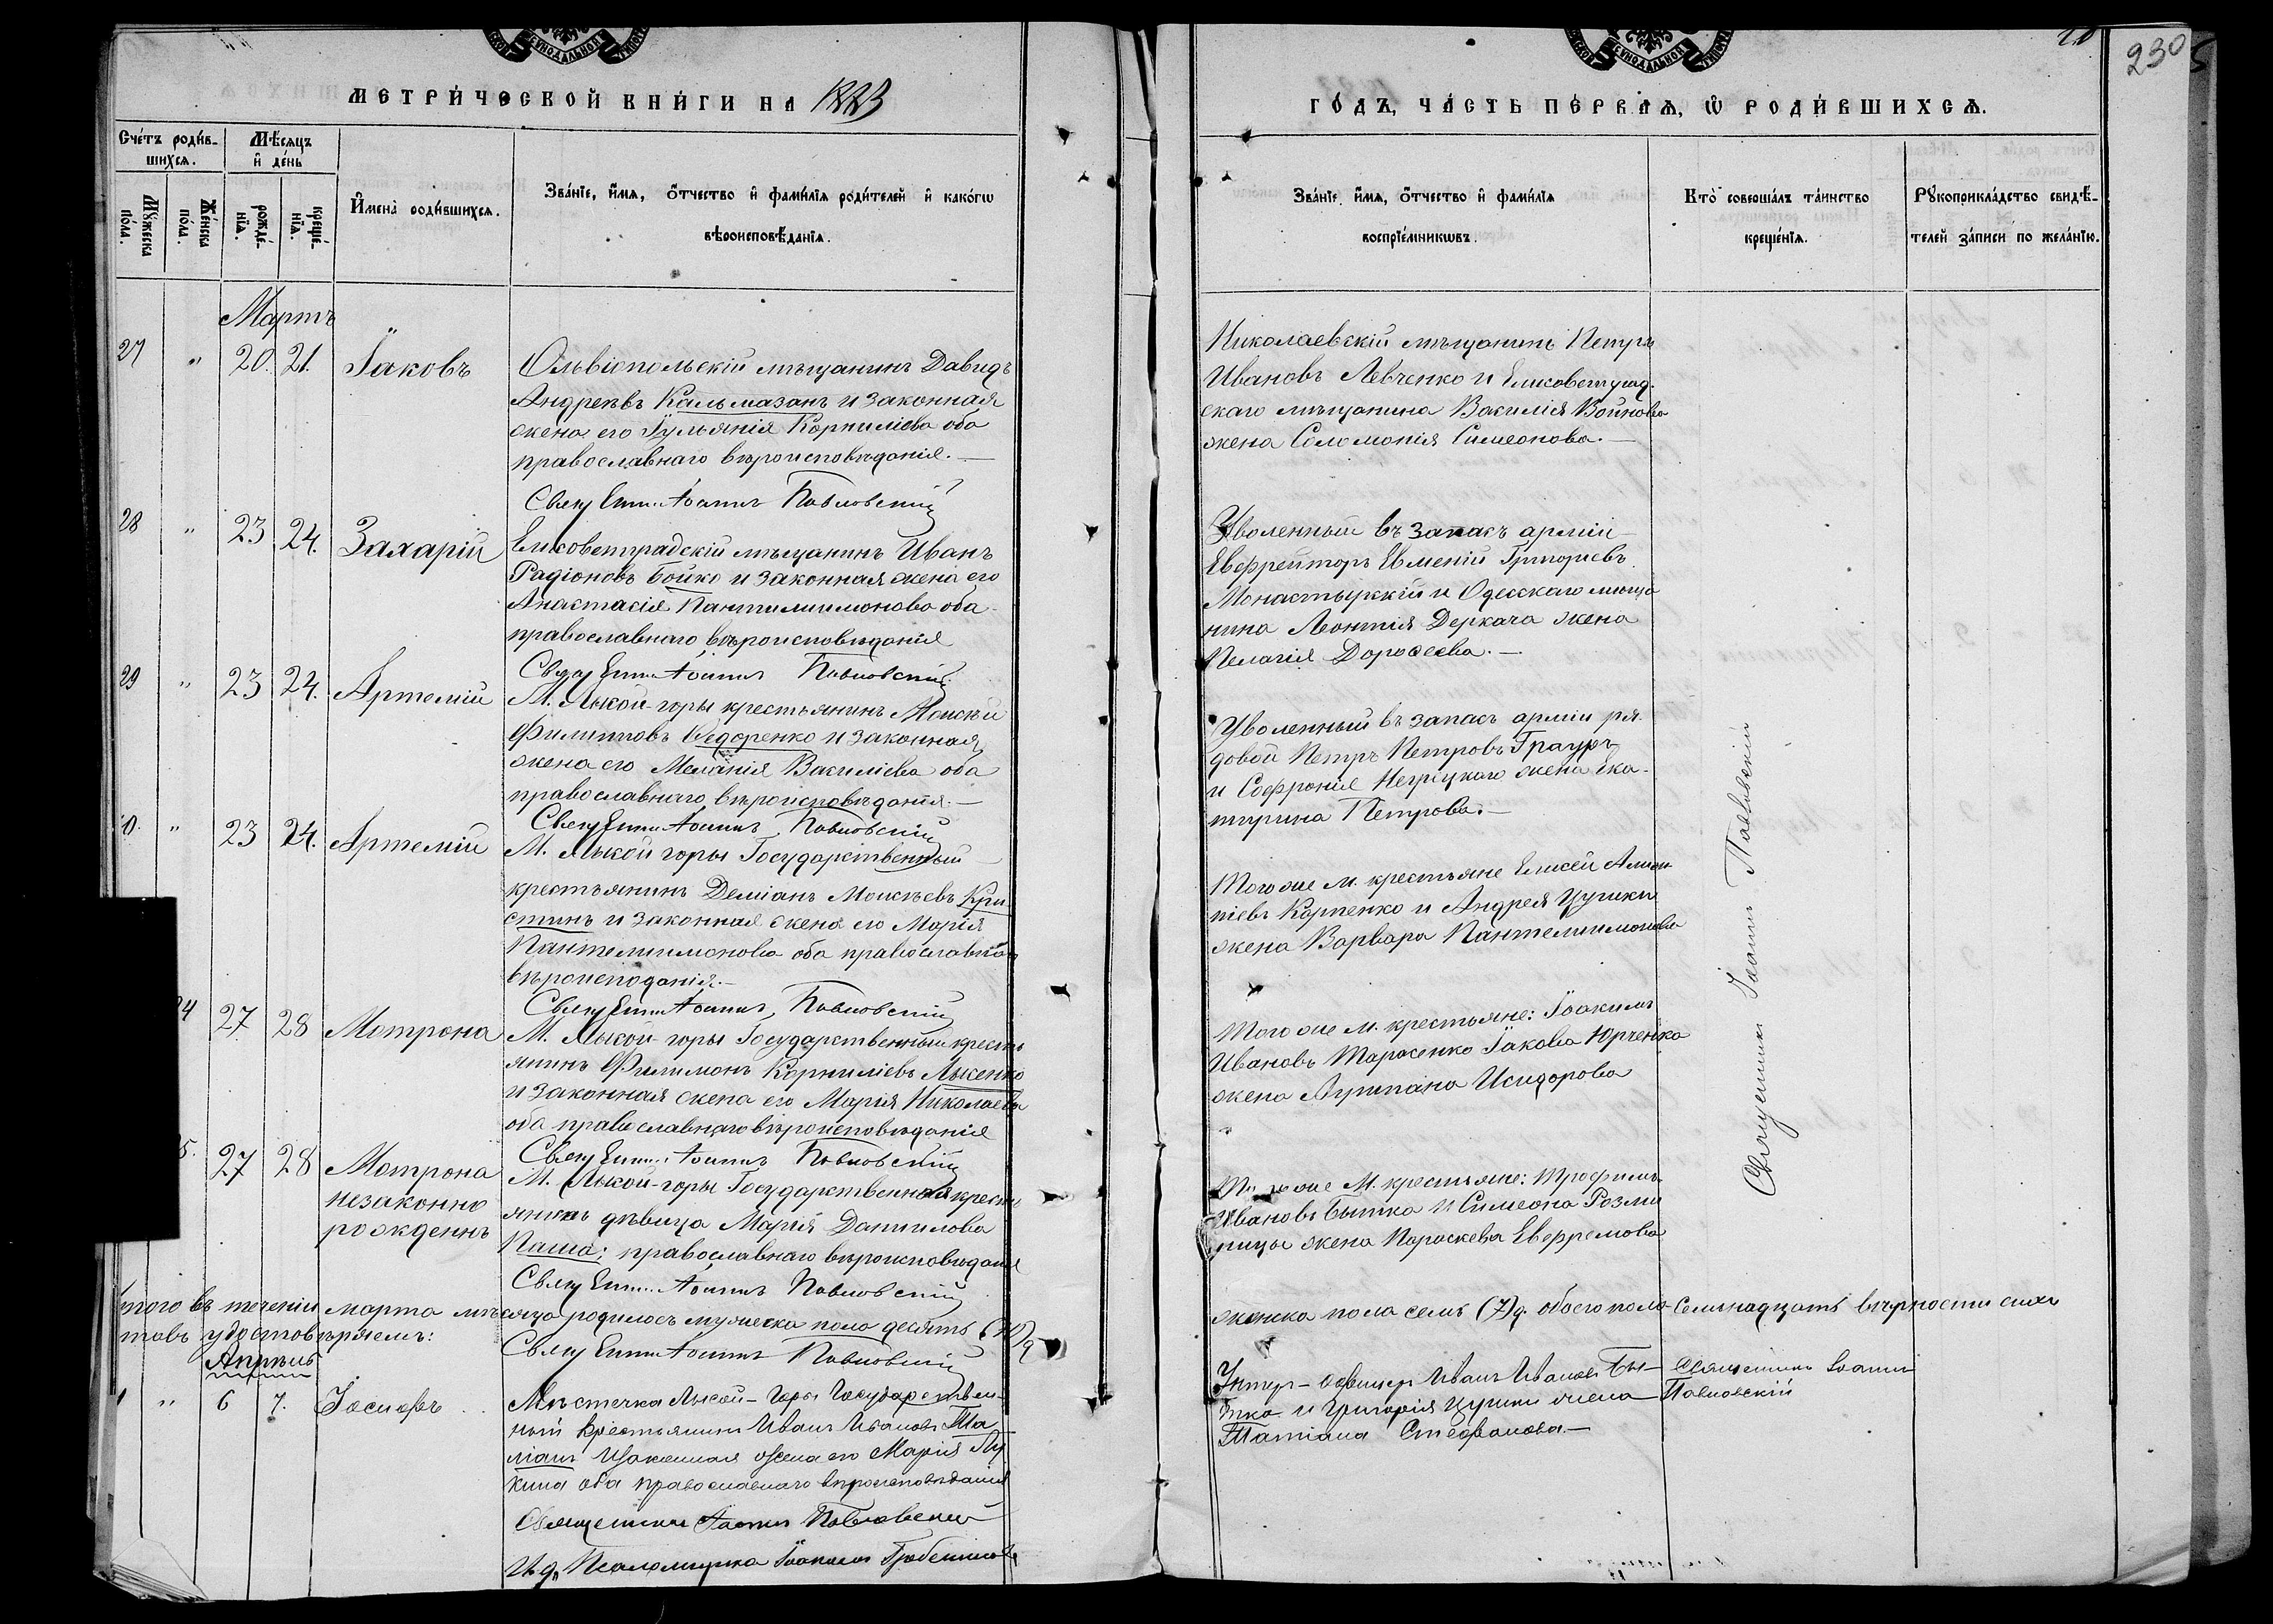 230
МЕТРИ́ЧЕСКОЙ КНИ́ГИ НА 1883
ГО́ДЪ, ЧА́СТЬ ПЕ́РВАѦ, Ѡ РОДИ́ВШИХСѦ.
Сче́тъ роди́в-
шихсѧ.
Мѣ́сѧцъ
и де́нь
Мꙋ́жеска
по́ла.
Же́нска
по́ла.
рожде́-
нїѧ.
креще́-
нїѧ.
И́мена роди́вшихсѧ.
Зва́нїе, и́мѧ, о́тчество и фами́лїѧ роди́телей и како́гѡ
вѣроисповѣ́данїѧ.
Зва́нїе, и́мѧ, о́тчество и фами́лїѧ
воспрїе́мникѡвъ.
Кто̀ соверша́лъ та́инство
креще́нїѧ.
Рꙋкоприкла́дство свидѣ́-
телей за́писи по жела́нїю.
Мартъ
27 " 20. 21. Іаковъ
Ольвіопольскій мѣщанинъ Давидъ
Андреевъ Кальмазанъ и законная
жена его Іульянія Корниліева оба
православнаго вѣроисповѣданія.
Іоаннъ Павловскій
Николаевскій мѣщанинъ Петръ
Ивановъ Левченко и Елисоветград-
скаго мѣщанина Василія Войнова
жена Соломонія Симеонова.
28 " 23 24. Захарій
Елисоветградскій мѣщанинъ Иванъ
Радіоновъ Бойко и законная жена его
Анастасія Пантилиимонова оба
православнаго вѣроисповѣданія
Іоаннъ Павловскій
Уволенный въ запасъ арміи
Евфрейторъ Евменій Григориевъ
Монастырскій и Одесскаго мѣща-
нина Леонтія Деркача жена
Пелагія Дороѳеева.
29 " 23 24. Артемій
М. Лысой-горы крестьянинъ Моисѣй
Филиповъ Ѳедоренко и законная
жена его Меланія Василіева оба
православнаго вѣроисповѣданія.
Іоаннъ Павловскій
Уволенный въ запасъ арміи ря-
довой Петръ Петровъ Грауръ
и Софронія Негрецкаго жена Ека-
терина Петрова.
0. " 23 24. Артемій
М. Лысой горы Государственный
крестьянинъ Деміанъ Моисѣевъ Кри-
стинъ и законная жена его Марія
Пантелиимонова оба православнаго
вѣроисподанія.
Іоаннъ Павловскій
Того же м. крестьяне Елисей
Карпенко и Андрея Цуцики
жена Варвара Пантелиимонова
4 27. 28 Мотрона
М. Лысой-горы Государственный кресть
янинъ Филимонъ Корниліевъ Лысенко
и законная жена его Марія Николаева
оба православнаго вѣроисповѣданія
Іоаннъ Павловскій
Того же м. крестьяне: Іоакимъ
Ивановъ Тарасенко Іакова Юрченка
жена Исидорова
5. 27 28 Мотрона
незаконно
рожденъ
М. Лысой-горы Государственная кресть
дѣвица Марія Даниилова
Паша; православнаго вѣроисповѣданія
Іоаннъ Павловскій
же М. крестьяне: Трофимъ
Ивановъ Бытка и Симеона
жена Параскева Евфремова
Священникъ Іоаннъ Павловскій
того въ теченіи марта мѣсяца родилось мужеска пола десять (10)
женска пола семь (7) д. обоего пола семьнадцать вѣрности сихъ
удостовѣряемъ:
Іоаннъ Павловскій
Апрѣль
1 " 6 7. Іосифъ
Мѣстечка Лысой-Горы Государствен-
ный крестьянинъ Иванъ Ивановъ
и законная жена его Марія Лу
кина оба православнаго вѣроисповѣданія
Священникъ Іоаннъ Павловскій
И. д. Псаломщика Іоакимъ
Унтер-офицер Иванъ Ивановъ Бы-
тка и Григорія Цуцики жена
Татіана Стефанова.
Священникъ Іоаннъ
Павловскій